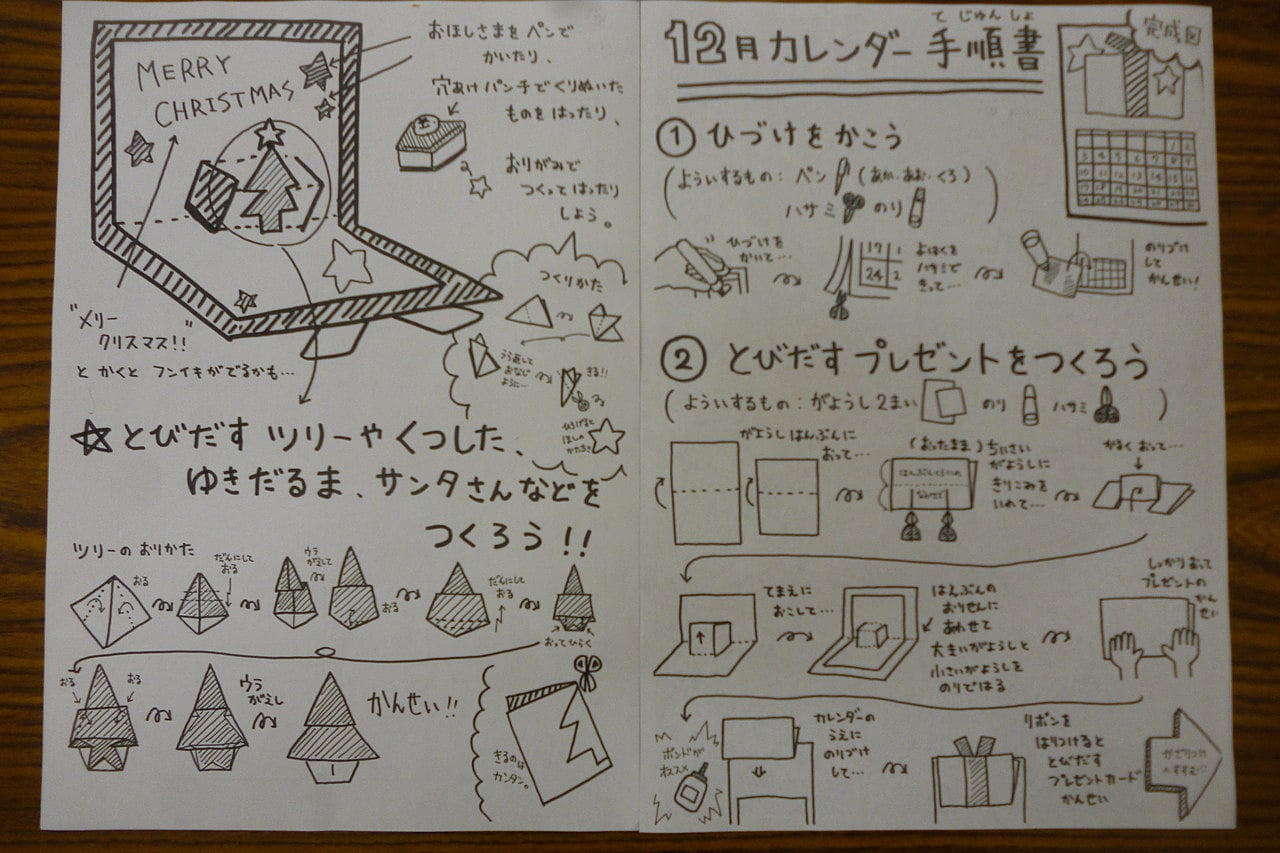 て じゅん しょ
12月カレンダー手順書
完成図
① ひづけをかこう
(よういするもの:ペン (あか・あお・くろ)
ハサミ のり )
ひづけを
かいて…
よはくを
ハサミで
きって…
のりづけ
して
かんせい!
② とびだすプレゼントをつくろう
(よういするもの:がようし2まい のり ハサミ )
がようしはんぶんに
おって…
(おったまま)ちいさい
がようしに
きりこみを
いれて…
かるくおって…
てまえに
おこして…
はんぶんの
おりせんに
あわせて
大きいがようしと
小さいがようしを
のりではる
しっかりおって
プレゼントの
かんせい
ボンドが
オススメ
カレンダーの
うえに
のりづけ
して…
リボンを
はりつけると
とびだす
プレゼントカード
かんせい
MERRY
CHRISTMAS
おほしさまをペンで
かいたり、
穴あけパンチでくりぬいた
ものをはったり、
おりがみで
つくってはったり
しよう。
"メリー
クリスマス!!"
とかくとフンイキがでるかも…
つくりかた
うら返して
おなじ
ように…
きる!!
ひろげると
ほしの
かたちに
☆とびだすツリーやくつした、
ゆきだるま、サンタさんなどを
つくろう!!
ツリーのおりかた
おる
だんにして
おる
ウラ
がえして
おる
だんにして
おる
おってひらく
おる
おる
ウラ
がえし
かんせい!!
きるのは
カンタン。